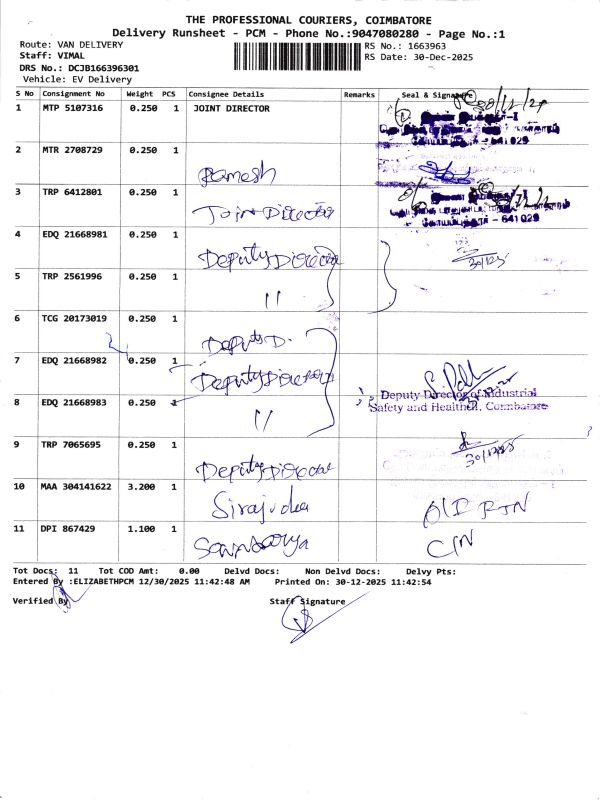 THE PROFESSIONAL COURIERS, COIMBATORE
Delivery Runsheet - PCM - Phone No.:9047080280 - Page No.:1
Route: VAN DELIVERY
RS No.: 1663963
Staff: VIMAL
RS Date: 30-Dec-2025
DRS No.: DCJB166396301
Vehicle: EV Delivery
S No Consignment No Weight PCS Consignee Details Remarks Seal & Signature
1 MTP 5107316 0.250 1 JOINT DIRECTOR
641 029
2 MTR 2708729 0.250 1 Ramesh
3 TRP 6412801 0.250 1 Joint Director
கோயம்புத்தூர் - 641 029
4 EDQ 21668981 0.250 1 Deputy Director
30/12/25
5 TRP 2561996 0.250 1 11
6 TCG 20173019 0.250 1 Deputy D.
7 EDQ 21668982 0.250 1 Deputy Director
Deputy Director of Industrial
8 EDQ 21668983 0.250 1 11
Safety and Health-II, Coimbatore
9 TRP 7065695 0.250 1 Deputy Director
30/12/25
10 MAA 304141622 3.200 1 Sirajudeen
11 DPI 867429 1.100 1
Tot Docs: 11 Tot COD Amt: 0.00 Delvd Docs: Non Delvd Docs: Delvy Pts:
Entered By :ELIZABETHPCM 12/30/2025 11:42:48 AM Printed On: 30-12-2025 11:42:54
Verified By
Staff Signature